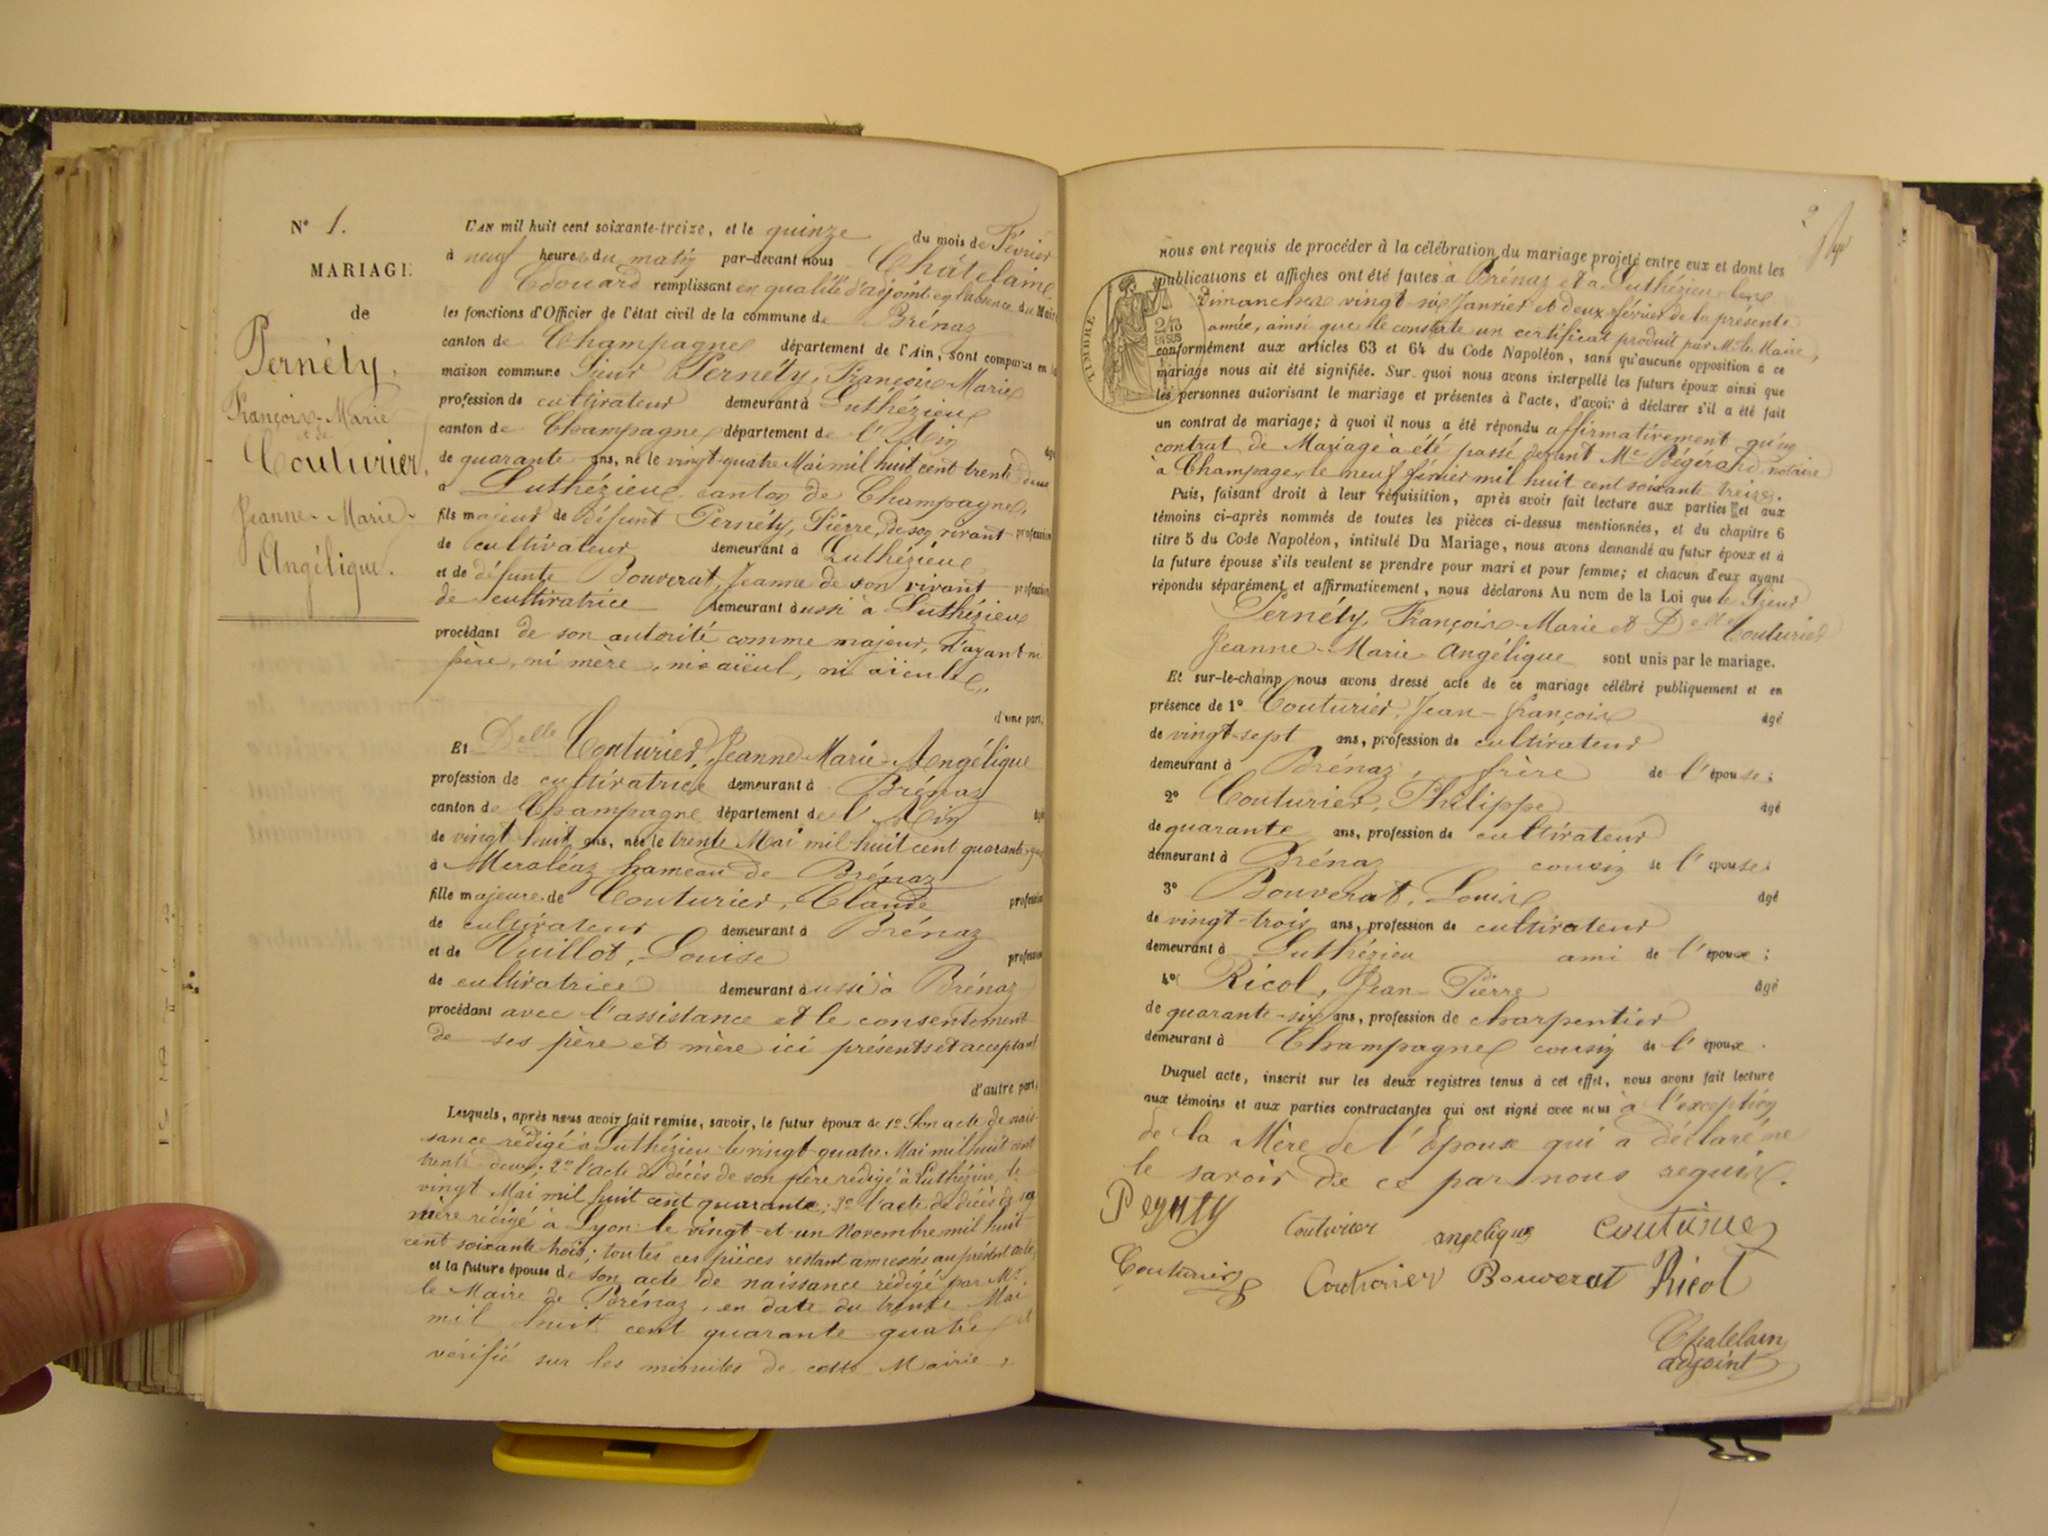 N° 1.
MARIAGE
de
Pernéty,
François-Marie
et de
Couturier,
Jeanne-Marie-
Angélique.
L'AN mil huit cent soixante-treize, et le quinze du mois de Février
à neuf heures du matin par-devant nous Châtelain
Edouard remplissant en qualité d'adjoint en l'absence du Maire
les fonctions d'Officier de l'état civil de la commune de Brénaz
canton de Champagne département de l'Ain, sont comparus en la
maison commune Sieur Pernéty, François Marie
profession de cultivateur demeurant à Luthézieu
canton de Champagne département de l'Ain âgé
de quarante ans, né le vingt-quatre Mai mil huit cent trente deux
à Luthézieu canton de Champagne,
fils majeur de défunt Pernéty, Pierre, de son vivant profession
de cultivateur demeurant à Luthézieu
et de défunte Bouverat, Jeanne de son vivant profession
de cultivatrice demeurant aussi à Luthézieu
procédant de son autorité comme majeur, n'ayant ni
père, ni mère, ni aïeul, ni aïeule,
d'une part.
Et Delle Couturier, Jeanne-Marie-Angélique
profession de cultivatrice demeurant à Brénaz
canton de Champagne département de l'Ain âgé
de vingt-huit ans, née le trente Mai mil huit cent quarante-quatre
à Meraléaz hameau de Brénaz
fille majeure de Couturier, Claude profession
de cultivateur demeurant à Brénaz
et de Vuillot, Louise profession
de cultivatrice demeurant aussi à Brénaz
procédant avec l'assistance et le consentement
de ses père et mère ici présents et acceptant
d'autre part,
Lesquels, après nous avoir fait remise, savoir, le futur époux de 1° Son acte de nais-
sance rédigé à Luthézieu le vingt-quatre Mai mil huit cent
trente deux; 2° l'acte de décès de son père rédigé à Luthézieu le
vingt Mai mil huit cent quarante; 3° l'acte de décès de sa
mère rédigé à Lyon le vingt-et-un Novembre mil huit
cent soixante trois; toutes ces pièces restant annexées au présent acte,
et la future épouse de son acte de naissance rédigé par Mr.
le Maire de Brénaz, en date du trente Mai
mil huit cent quarante quatre et
vérifié sur les minutes de cette Mairie,
2
nous ont requis de procéder à la célébration du mariage projeté entre eux et dont les
publications et affiches ont été faites à Brénaz et à Luthézieu les
Dimanches vingt-six Janvier et deux février de la présente
année, ainsi que le constate un certificat produit par Mr le Maire,
TIMBRE
conformément aux articles 63 et 64 du Code Napoléon, sans qu'aucune opposition à ce
mariage nous ait été signifiée. Sur quoi nous avons interpellé les futurs époux ainsi que
les personnes autorisant le mariage et présentes à l'acte, d'avoir à déclarer s'il a été fait
un contrat de mariage; à quoi il nous a été répondu affirmativement qu'un
contrat de Mariage a été passé devant Me Bégérard notaire
à Champagne le neuf février mil huit cent soixante treize.
Puis, faisant droit à leur réquisition, après avoir fait lecture aux parties et aux
témoins ci-après nommés de toutes les pièces ci-dessus mentionnées, et du chapitre 6
titre 5 du Code Napoléon, intitulé Du Mariage, nous avons demandé au futur époux et à
la future épouse s'ils veulent se prendre pour mari et pour femme; et chacun d'eux ayant
répondu séparément et affirmativement, nous déclarons Au nom de la Loi que le Sieur
Pernéty, François-Marie et Delle Couturier
Jeanne-Marie-Angélique sont unis par le mariage.
Et sur-le-champ nous avons dressé acte de ce mariage célébré publiquement et en
présence de 1° Couturier, Jean-François âgé
de vingt-sept ans, profession de cultivateur
demeurant à Brénaz, frère de l'épouse;
2° Couturier, Philippe âgé
de quarante ans, profession de cultivateur
demeurant à Brénaz cousin de l'épouse;
3° Bouverat, Louis âgé
de vingt-trois ans, profession de cultivateur
demeurant à Luthézieu ami de l'époux;
4° Ricol, Jean-Pierre âgé
de quarante-six ans, profession de charpentier
demeurant à Champagne cousin de l'époux.
Duquel acte, inscrit sur les deux registres tenus à cet effet, nous avons fait lecture
aux témoins et aux parties contractantes qui ont signé avec nous à l'exception
de la Mère de l'épouse qui a déclaré ne
le savoir de ce par nous requise.
Couturier angelique Couturier
Couturier Couturier Bouverat Ricol
Chatelain
adjoint